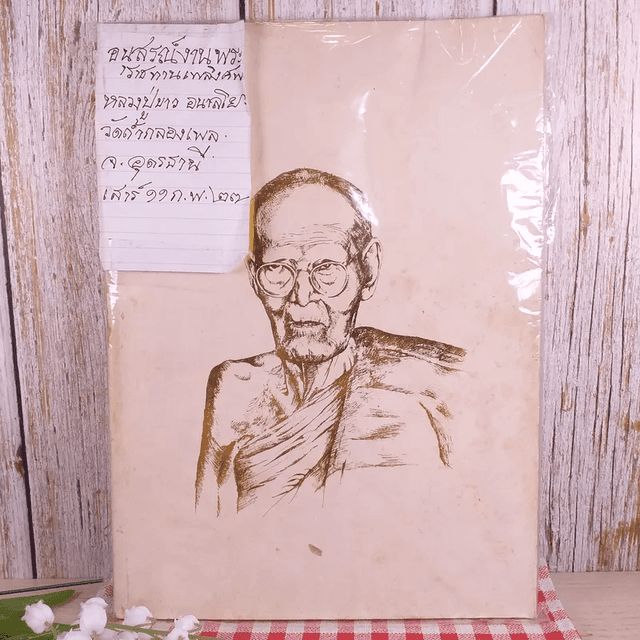 อนุสรณ์งานพระ
ราชทานเพลิงศพ
หลวงปู่ขาว อนาลโย.
วัดถ้ำกลองเพล.
จ. อุดรธานี.
เสาร์ ๑๑ ก.พ. ๒๗